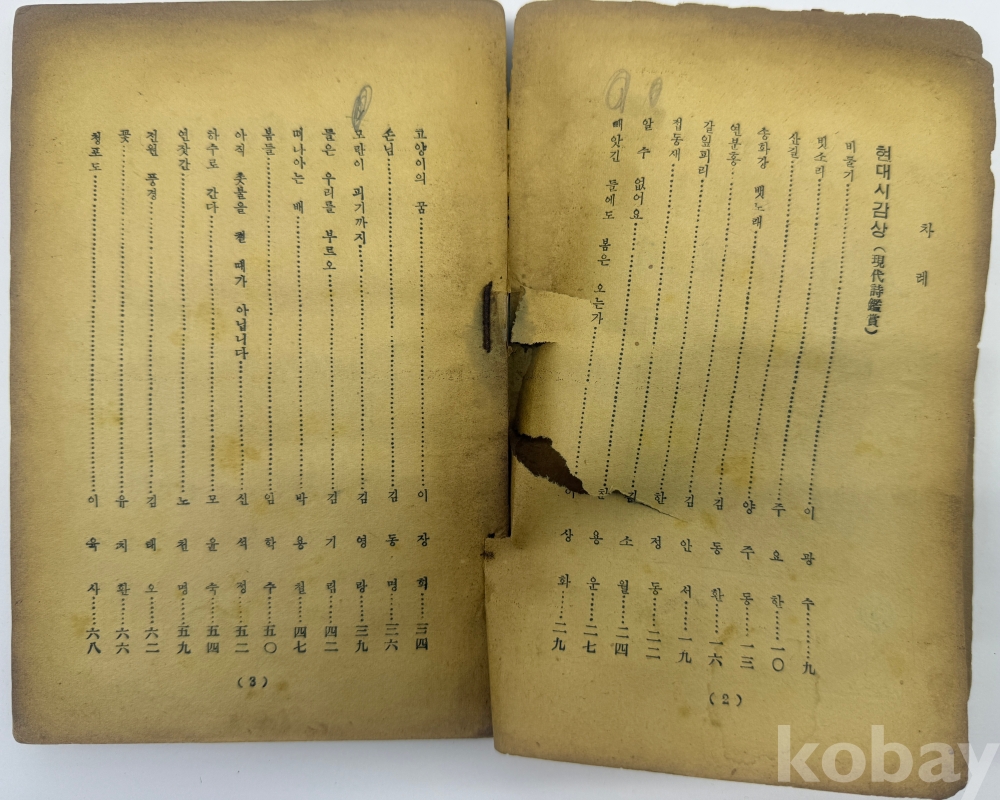 차 례
현대시감상(現代詩鑑賞)
비둘기……이 광 수……九
빗소리……주 요 한……一〇
산길……양 주 동……一三
송화강 뱃노래……김 동 환……一六
연분홍……김 안 서……一九
갈잎피리……한 정 동……二二
접동새……김 소 월……二四
알 수 없어요……한 용 운……二七
빼앗긴 들에도 봄은 오는가……이 상 화……二九
(2)
고양이의 꿈……이 장 희……三四
손님……김 동 명……三六
모란이 피기까지……김 영 랑……三九
들은 우리를 부르오……김 기 림……四二
떠나가는 배……박 용 철……四七
봄들……임 학 수……五〇
아직 촛불을 켤 때가 아닙니다……신 석 정……五二
하추로 간다……모 윤 숙……五四
연잣간……노 천 명……五九
전원 풍경……김 태 오……六二
꽃……유 치 환……六六
청포도……이 육 사……六八
(3)
kobay